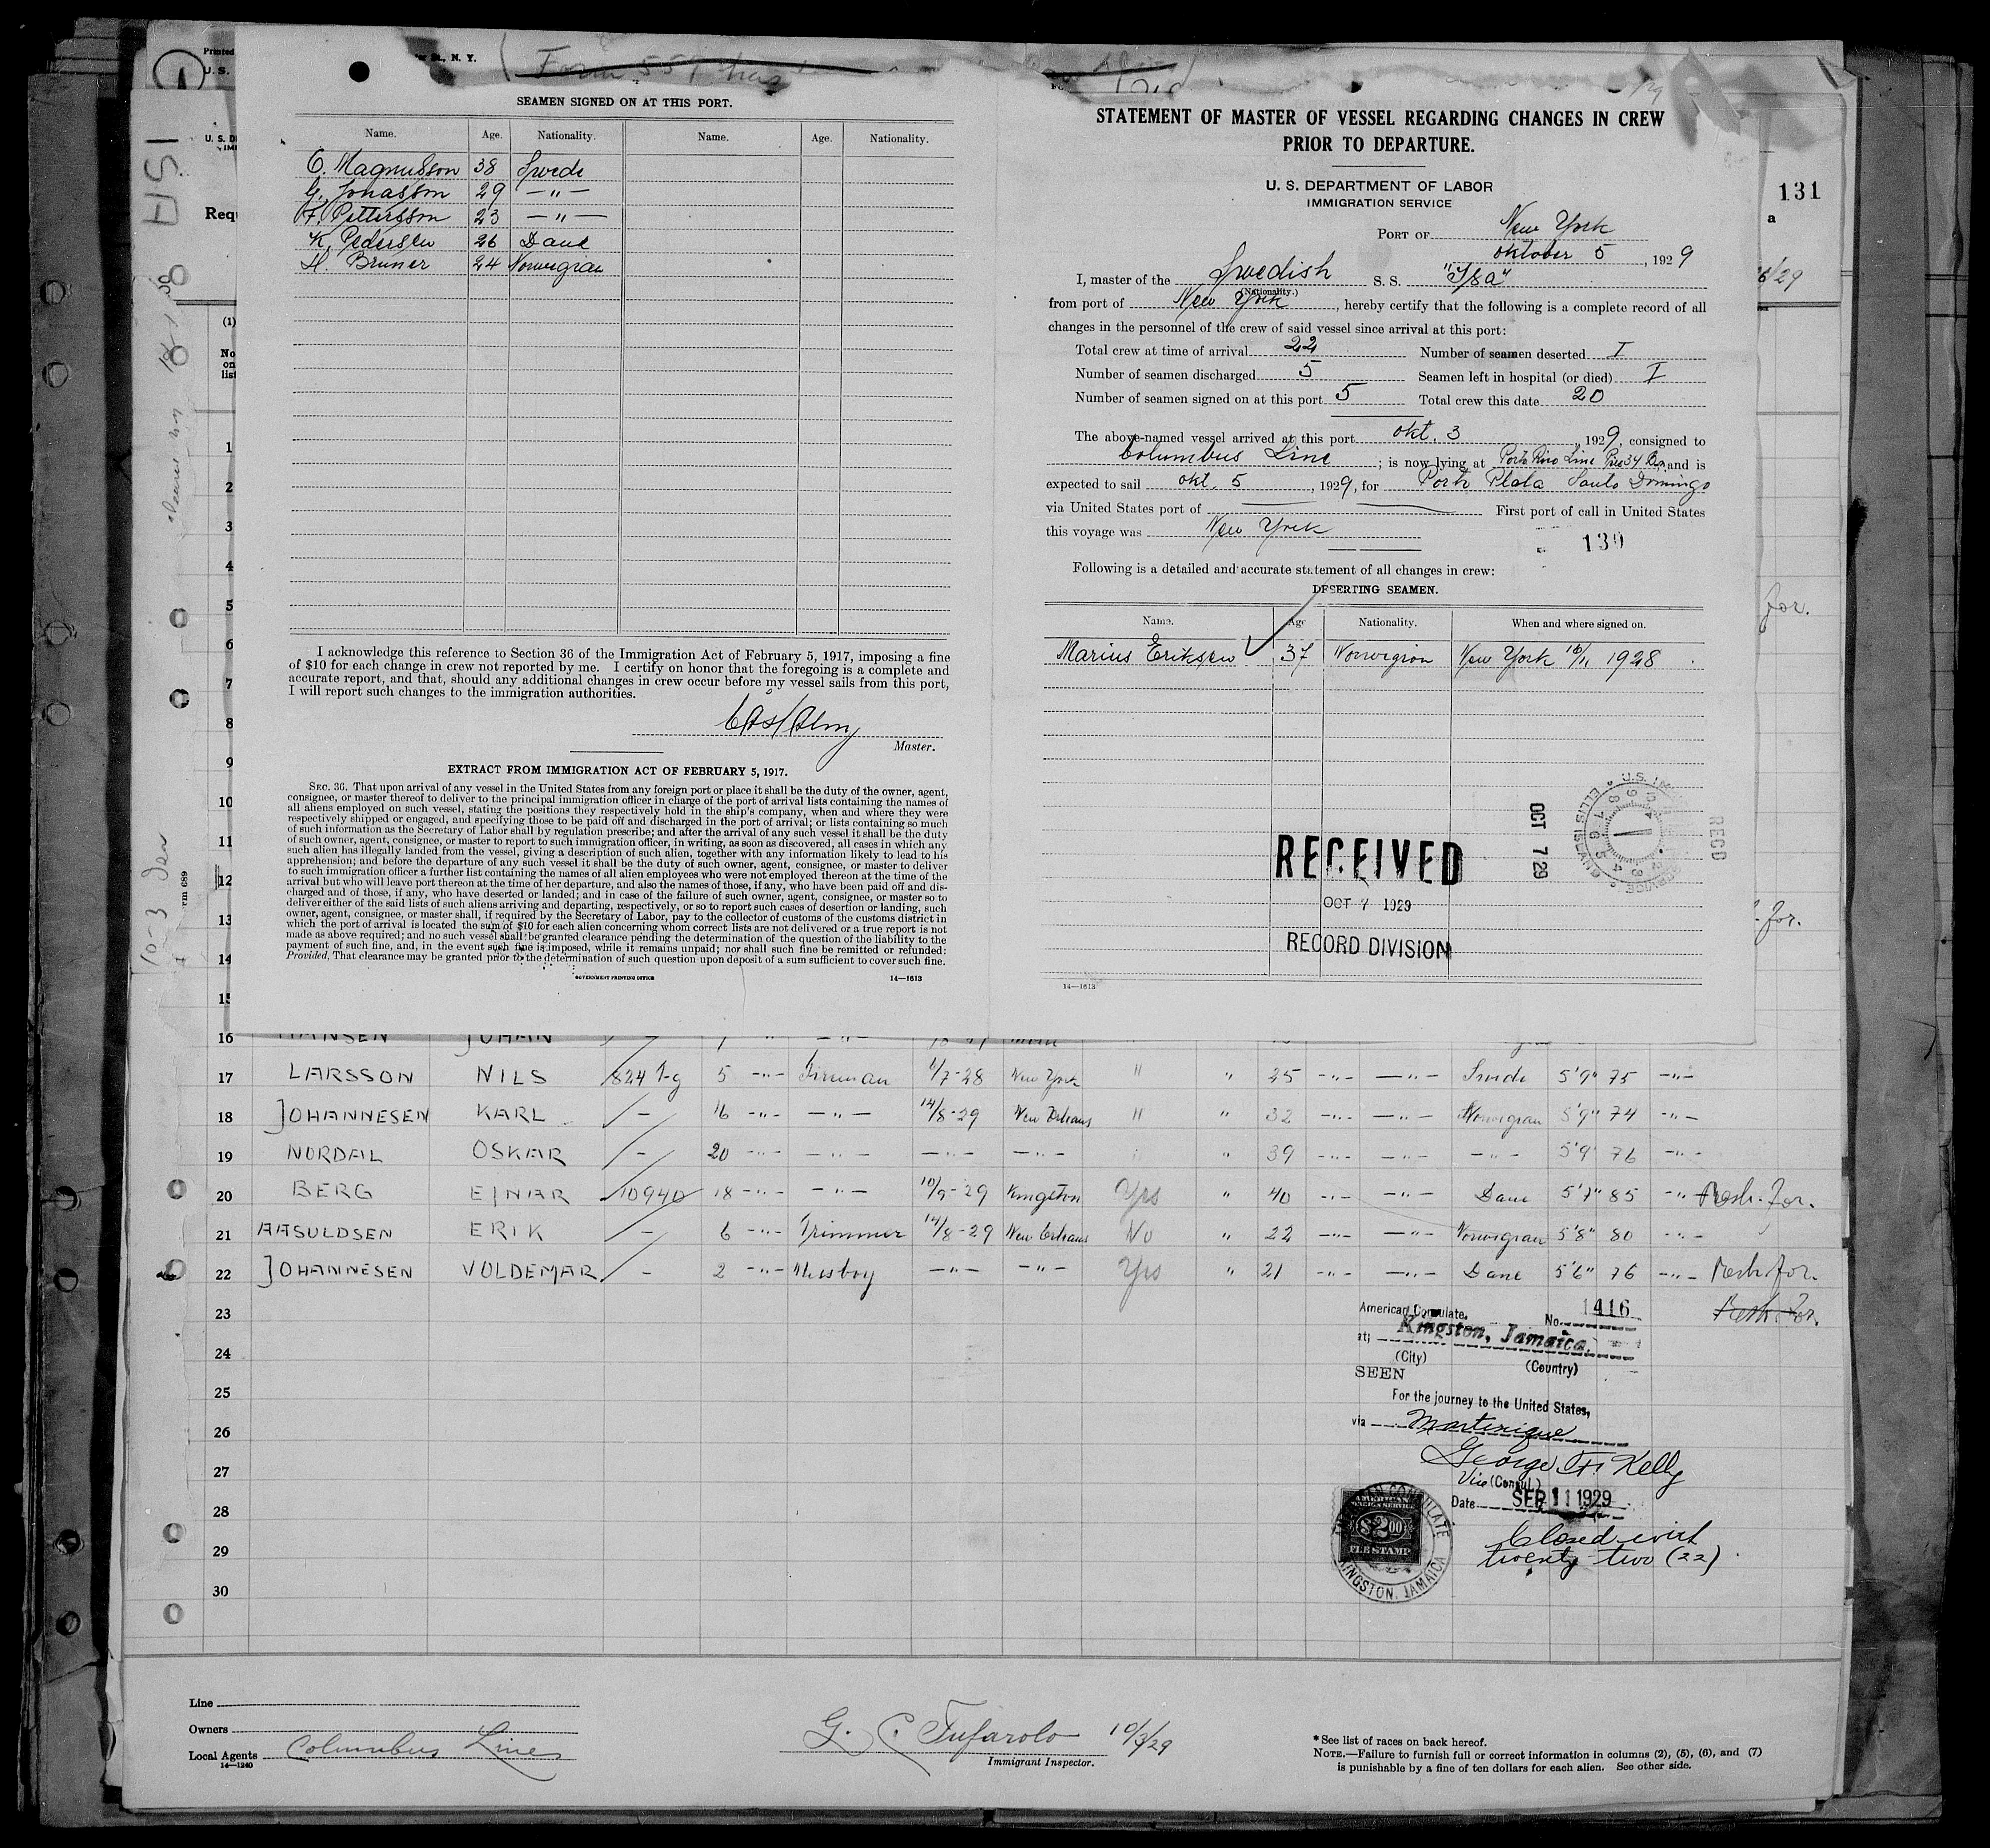 St., N. Y.
SEAMEN SIGNED ON AT THIS PORT.
Name. Age. Nationality. Name. Age. Nationality.
C. Magnusson 38 Swede
G. Jonasson 29 — " —
F. Pettersson 23 — " —
K. Pedersen 26 Dane
H. Bruner 24 Norwegian
I acknowledge this reference to Section 36 of the Immigration Act of February 5, 1917, imposing a fine
of $10 for each change in crew not reported by me. I certify on honor that the foregoing is a complete and
accurate report, and that, should any additional changes in crew occur before my vessel sails from this port,
I will report such changes to the immigration authorities.
Master.
EXTRACT FROM IMMIGRATION ACT OF FEBRUARY 5, 1917.
SEC. 36. That upon arrival of any vessel in the United States from any foreign port or place it shall be the duty of the owner, agent,
consignee, or master thereof to deliver to the principal immigration officer in charge of the port of arrival lists containing the names of
all aliens employed on such vessel, stating the positions they respectively hold in the ship's company, when and where they were
respectively shipped or engaged, and specifying those to be paid off and discharged in the port of arrival; or lists containing so much
of such information as the Secretary of Labor shall by regulation prescribe; and after the arrival of any such vessel it shall be the duty
of such owner, agent, consignee, or master to report to such immigration officer, in writing, as soon as discovered, all cases in which any
such alien has illegally landed from the vessel, giving a description of such alien, together with any information likely to lead to his
apprehension; and before the departure of any such vessel it shall be the duty of such owner, agent, consignee, or master to deliver
to such immigration officer a further list containing the names of all alien employees who were not employed thereon at the time of the
arrival but who will leave port thereon at the time of her departure, and also the names of those, if any, who have been paid off and dis-
charged and of those, if any, who have deserted or landed; and in case of the failure of such owner, agent, consignee, or master so to
deliver either of the said lists of such aliens arriving and departing, respectively, or so to report such cases of desertion or landing, such
owner, agent, consignee, or master shall, if required by the Secretary of Labor, pay to the collector of customs of the customs district in
which the port of arrival is located the sum of $10 for each alien concerning whom correct lists are not delivered or a true report is not
made as above required; and no such vessel shall be granted clearance pending the determination of the question of the liability to the
payment of such fine, and, in the event such fine is imposed, while it remains unpaid; nor shall such fine be remitted or refunded:
Provided, That clearance may be granted prior to the determination of such question upon deposit of a sum sufficient to cover such fine.
GOVERNMENT PRINTING OFFICE 14—1613
STATEMENT OF MASTER OF VESSEL REGARDING CHANGES IN CREW
PRIOR TO DEPARTURE.
U. S. DEPARTMENT OF LABOR
IMMIGRATION SERVICE
PORT OF New York
oktober 5, 1929
I, master of the Swedish S. S. "Isa"
(Nationality.)
from port of New York, hereby certify that the following is a complete record of all
changes in the personnel of the crew of said vessel since arrival at this port:
Total crew at time of arrival 22 Number of seamen deserted I
Number of seamen discharged 5 Seamen left in hospital (or died) I
Number of seamen signed on at this port 5 Total crew this date 20
The above-named vessel arrived at this port okt. 3 1929, consigned to
Columbus Line; is now lying at Porto Rico Line Pier 34 Bn and is
expected to sail okt. 5, 1929, for Porto Plata Santo Domingo
via United States port of First port of call in United States
this voyage was New York
130
Following is a detailed and accurate statement of all changes in crew:
DESERTING SEAMEN.
Name. Age Nationality. When and where signed on.
Marius Eriksen 37 Norwegian New York 16/11 1928
OCT 7 29
REC'D
RECEIVED
OCT 7 1929
RECORD DIVISION
14—1613
131
a
Printed
U. S.
Requ
(1)
No
on
list
1
2
3
4
5
6
7
8
9
10
11
12
13
14
15
16 HANSEN JOHAN
17 LARSSON NILS 5 -"- Fireman 11/7-28 New York " " 25 -"- -"- Swede 5'9" 75 -"-
18 JOHANNESEN KARL - 16 -"- -"- 14/8-29 New Orleans " " 32 -"- -"- Norwegian 5'9" 74 -"-
19 NORDAL OSKAR - 20 -"- -"- -"- -"- " " 39 -"- -"- -"- 5'9 76 -"-
20 BERG EJNAR 10940 18 -"- -"- 10/9-29 Kingston Yes " 40 -"- -"- Dane 5'7" 85 -"- Resh. for.
21 AASULDSEN ERIK - 6 -"- Trimmer 14/8-29 New Orleans No " 22 -"- -"- Norwegian 5'8" 80 -"-
22 JOHANNESEN VOLDEMAR - 2 -"- Messboy -"- -"- Yes " 21 -"- -"- Dane 5'6" 76 -"- Resh. for.
23
24
25
26
27
28
29
30
American Consulate. No. 1416
at; Kingston, Jamaica.
(City) (Country)
SEEN
For the journey to the United States,
via Martinique
George F. Kelly
Vice (Consul)
Date SEP 11 1929
Closed with
twenty two (22)
AMERICAN CONSULATE
AMERICAN FOREIGN SERVICE
$2.00
FEE STAMP
KINGSTON, JAMAICA
Line
Owners
Local Agents Columbus Lines
14—1240
G. C. Tufarolo 10/3/29
Immigrant Inspector.
* See list of races on back hereof.
NOTE.—Failure to furnish full or correct information in columns (2), (5), (6), and (7)
is punishable by a fine of ten dollars for each alien. See other side.